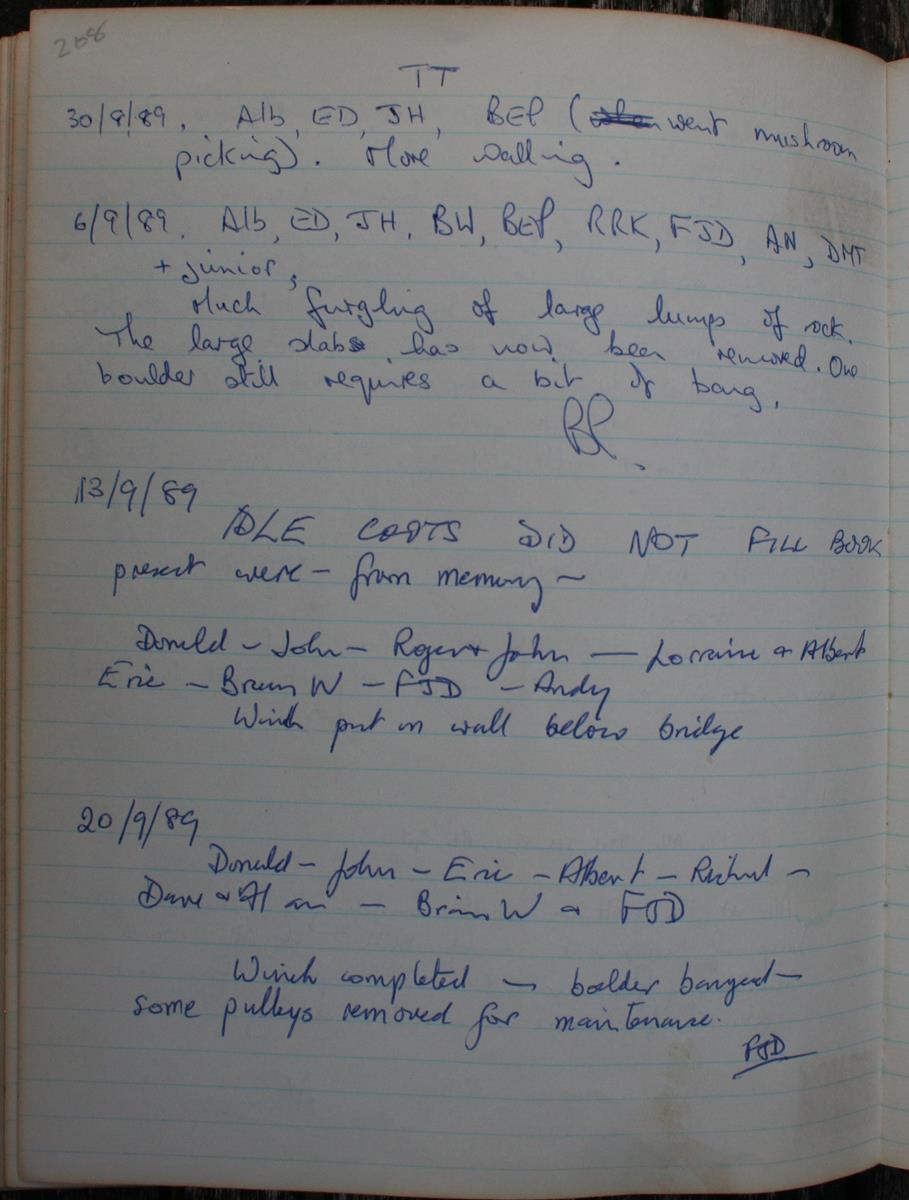 208
TT
30/8/89. Alb, ED, JH, BEP ( went mushroom
picking). More walling.
6/9/89. Alb, ED, JH, BW, BEP, RRK, FJD, AN, DMT
+ junior,
Much furgling of large lumps of rock.
The large slabs has now been removed. One
boulder still requires a bit of bang.
BP.
13/9/89
IDLE COOTS DID NOT FILL BOOK
present were - from memory -
Donald - John - Roger + John - Lorraine & Albert
Eric - Brian W - FJD - Andy
Winch put on wall below bridge
20/9/89
Donald - John - Eric - Albert - Richard -
Dave & Alan - Brian W & FJD
Winch completed - bolder banged -
some pulleys removed for maintenance.
FJD